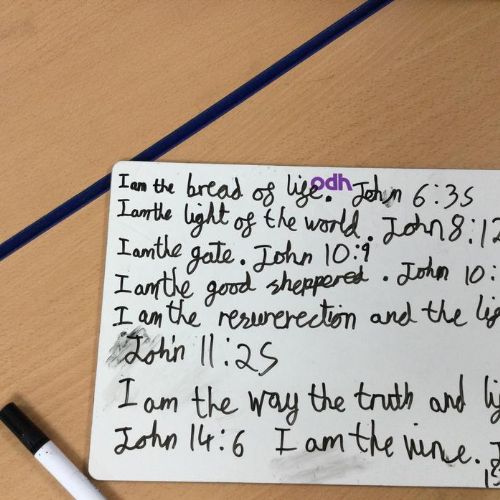 I am the bread of life. odh John 6:35
I am the light of the world. John 8:12
I am the gate. John 10:9
I am the good sheppered. John 10:
I am the resurerection and the lif
John 11:25
I am the way the truth and li
John 14:6 I am the vine. J
15